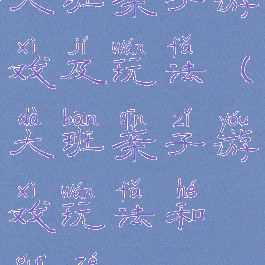 大班亲子游
xì jí wán fǎ
戏及玩法（
dà bān qīn zǐ yóu
大班亲子游
xì wán fǎ hé
戏玩法和
guī zé